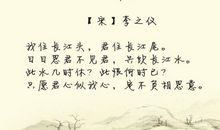 【宋】李之仪
我住长江头，君住长江尾。
日日思君不见君，共饮长江水。
此水几时休？此恨何时已？
只愿君心似我心，定不负相思意。